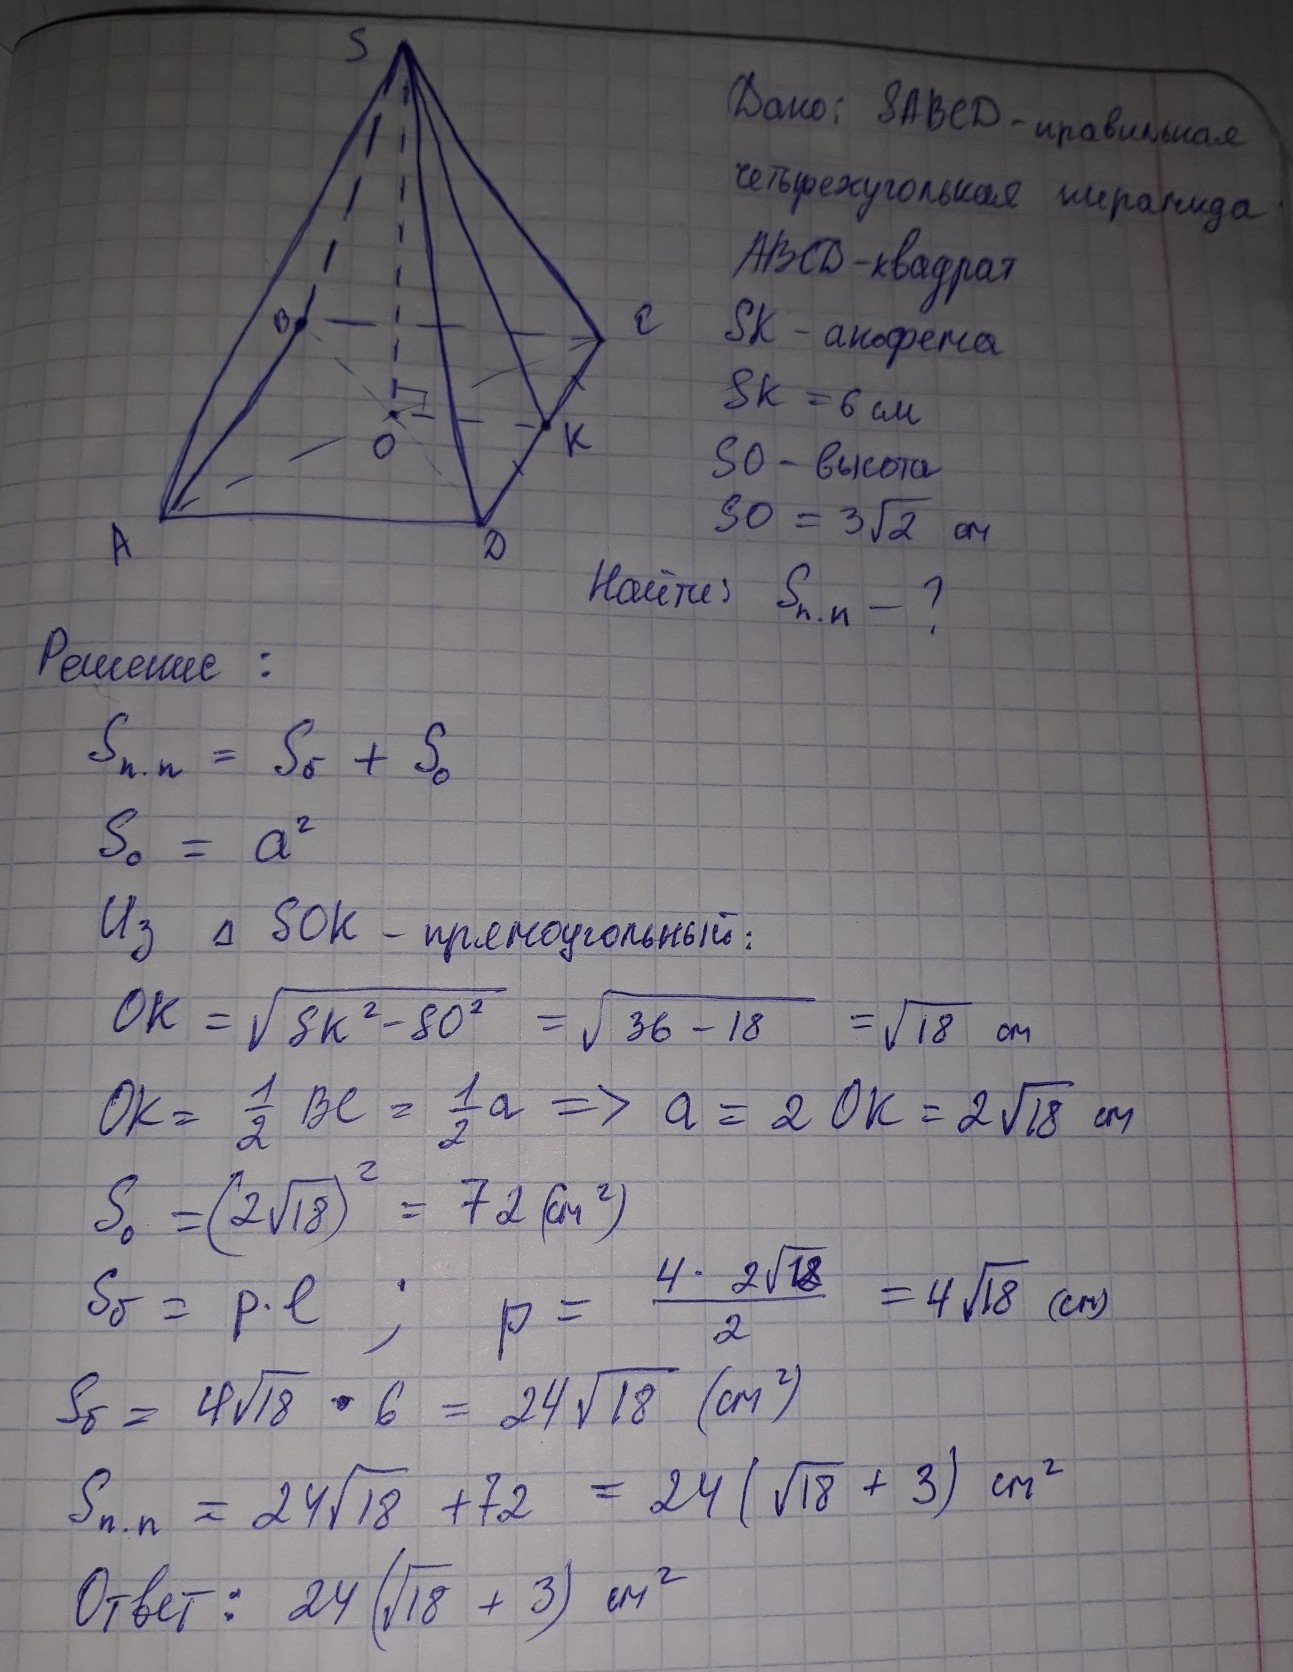 S
Дано: SABCD - правильная
четырехугольная пирамида
ABCD - квадрат
B
C
SK - апофема
SK = 6 см
O
K
SO - высота
SO = 3√2 см
A
D
Найти: Sп.п - ?
Решение:
Sп.п = Sб + S₀
S₀ = a²
Из Δ SOK - прямоугольный:
OK = √(SK² - SO²) = √(36 - 18) = √18 см
OK = 1/2 BC = 1/2 a => a = 2 OK = 2√18 см
S₀ = (2√18)² = 72 (см²)
Sб = p·l ; p = (4 · 2√18)/2 = 4√18 (см)
Sб = 4√18 · 6 = 24√18 (см²)
Sп.п = 24√18 + 72 = 24(√18 + 3) см²
Ответ: 24(√18 + 3) см²